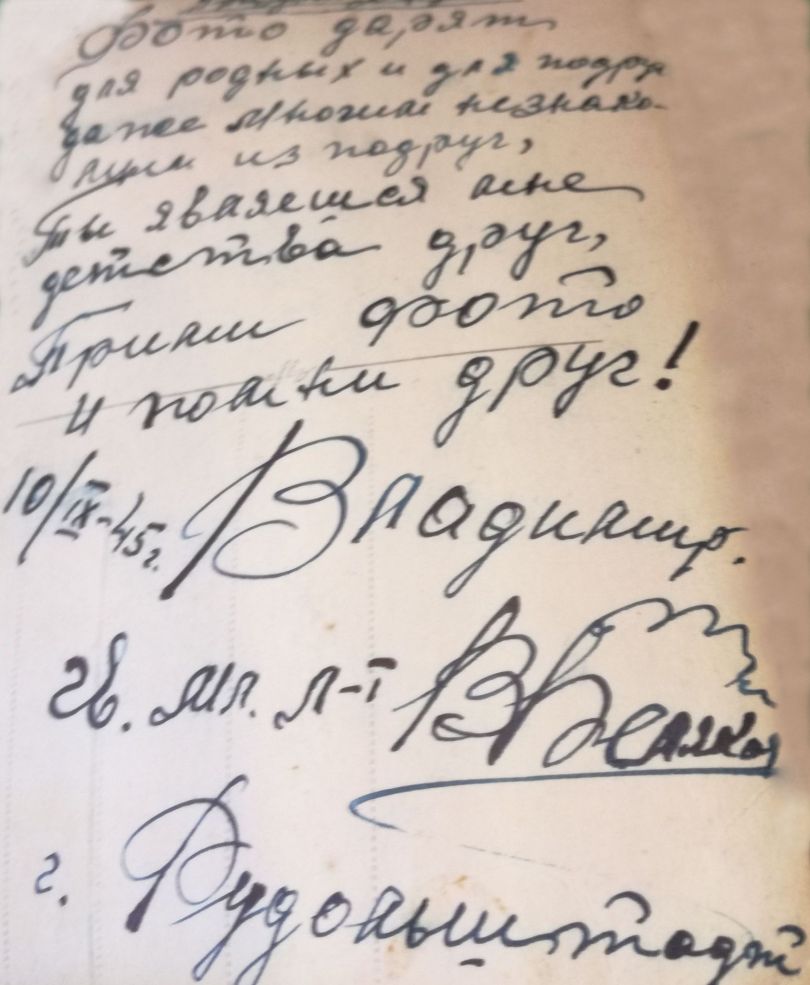 Фото дарят
для родных и для подруг
даже многим незнако-
мым из подруг,
Ты являешься мне
детства друг,
Прими фото
и помни друг!
10/IX-45г. Владимир.
гв. мл. л-т В Беляков
г. Рудольштадт